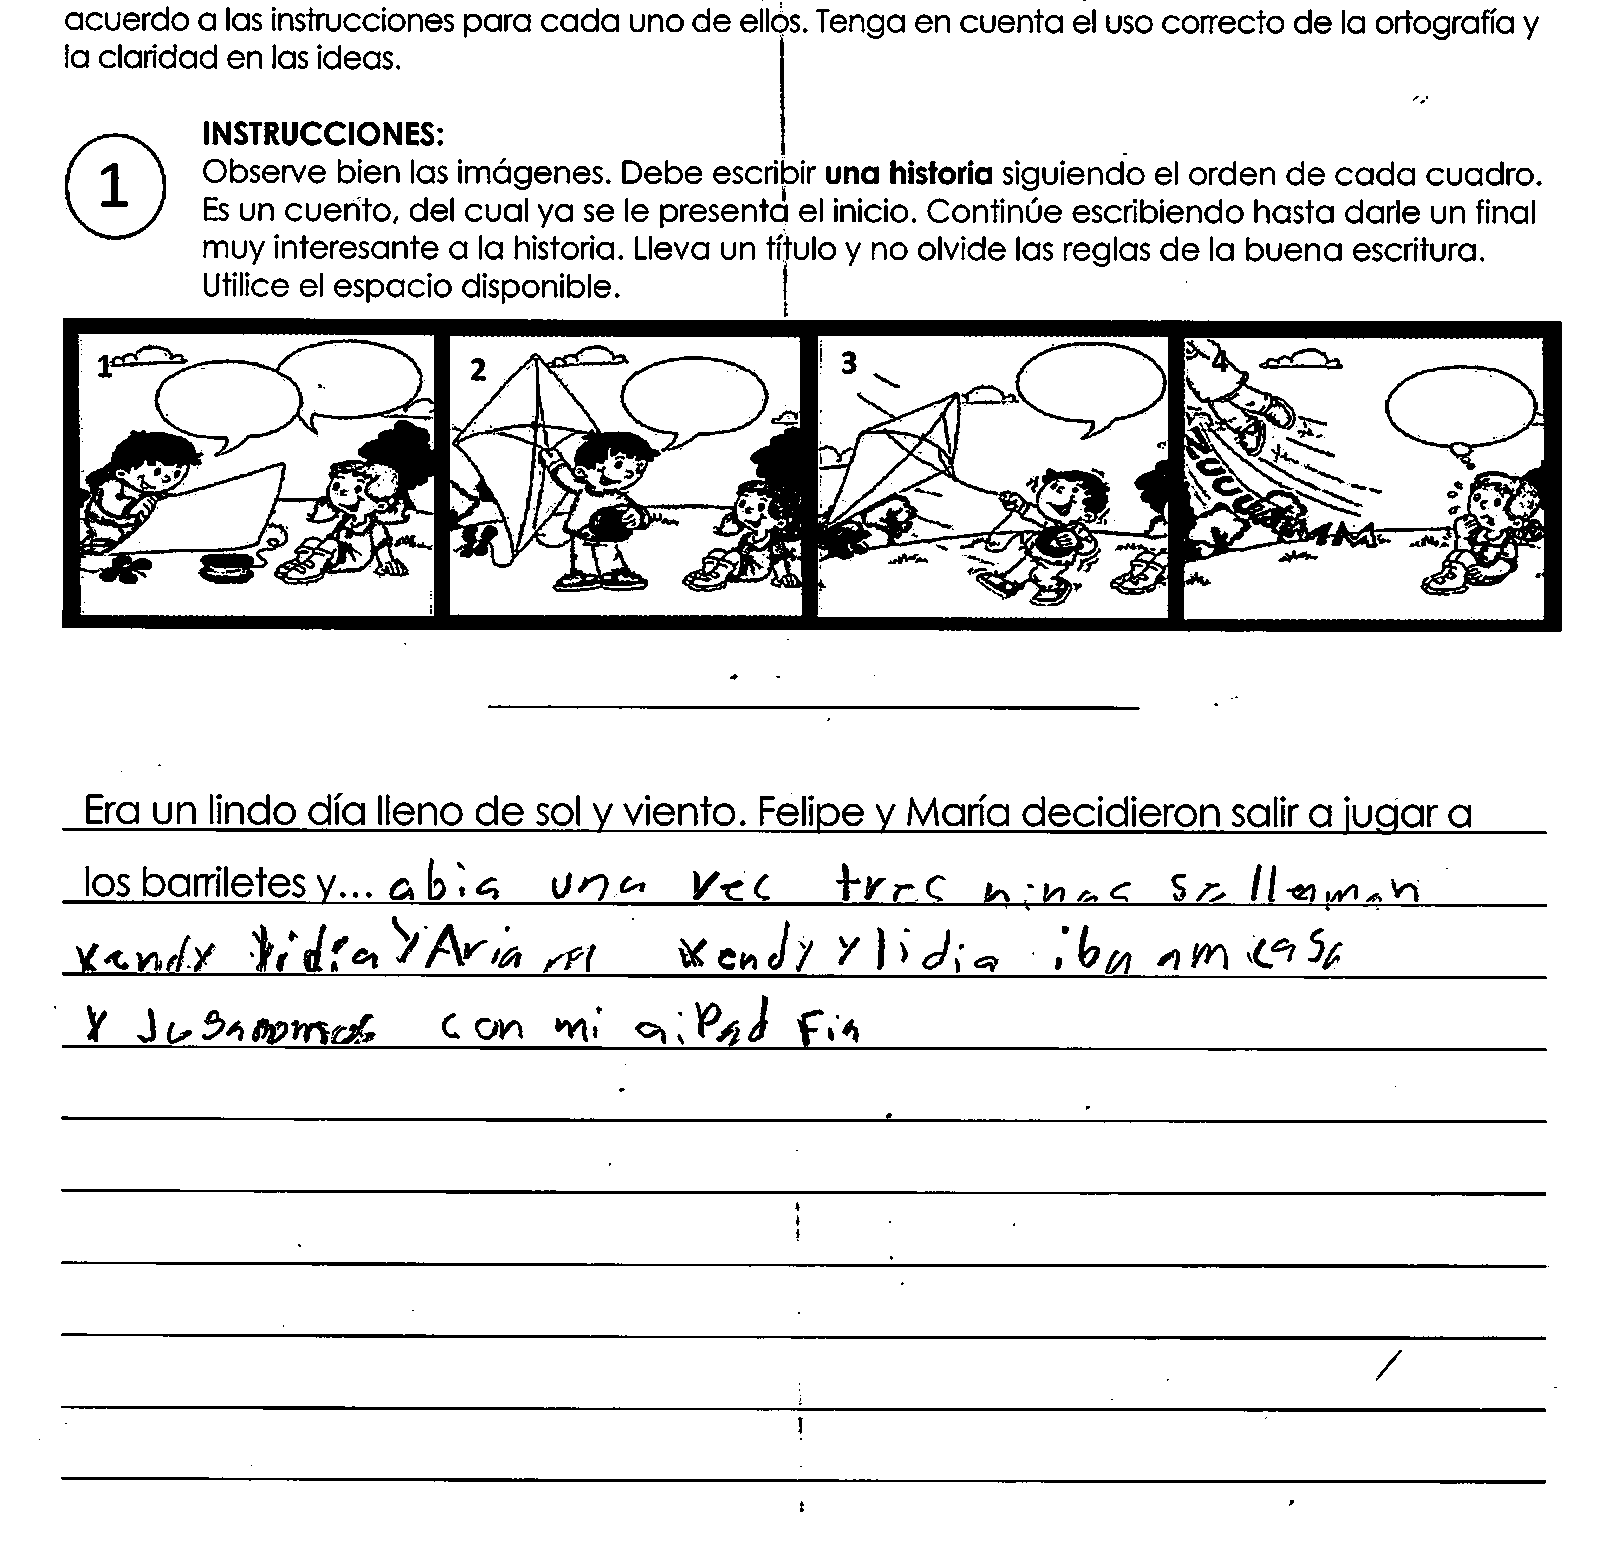 acuerdo a las instrucciones para cada uno de ellos. Tenga en cuenta el uso correcto de la ortografía y
la claridad en las ideas.
1
INSTRUCCIONES:
Observe bien las imágenes. Debe escribir una historia siguiendo el orden de cada cuadro.
Es un cuento, del cual ya se le presenta el inicio. Continúe escribiendo hasta darle un final
muy interesante a la historia. Lleva un título y no olvide las reglas de la buena escritura.
Utilice el espacio disponible.
1 2 3 4
Era un lindo día lleno de sol y viento. Felipe y María decidieron salir a jugar a
los barriletes y... abia una vec tres ninas se llaman
xendy lidia y Aria xendy y lidia iban am casa
con mi aiPad Fin